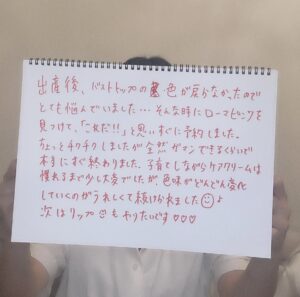 出産後、バストトップの色が戻らなかったので
とても悩んでいました…そんな時にローマピンクを
見つけて、「これだ!!」と思いすぐに予約しました。
ちょっとチクチクしましたが全然ガマンできるくらいで
本当にすぐ終わりました。子育てしながらケアクリームは
慣れるまで少し大変でしたが、色味がどんどん変化
していくのがうれしくて続けられました☺♪
次はリップもやりたいです♡♡♡